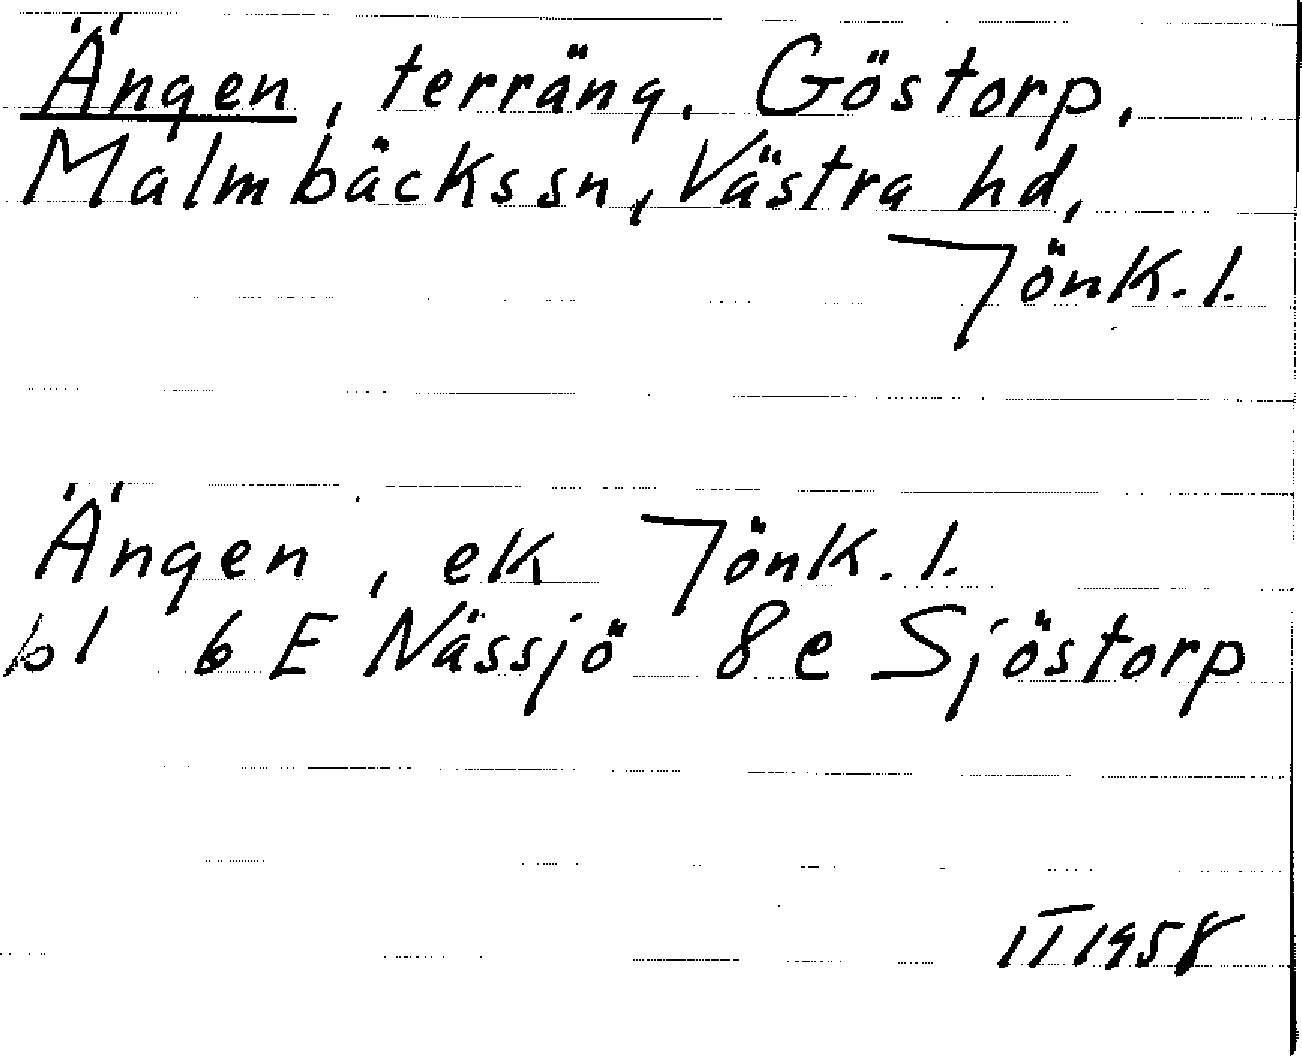 Ängen, terräng. Göstorp,
Malmbäckssn, Västra hd,
Jönk. l.
Ängen, ek Jönk. l.
bl 6 E Nässjö 8 e Sjöstorp
IT 1958